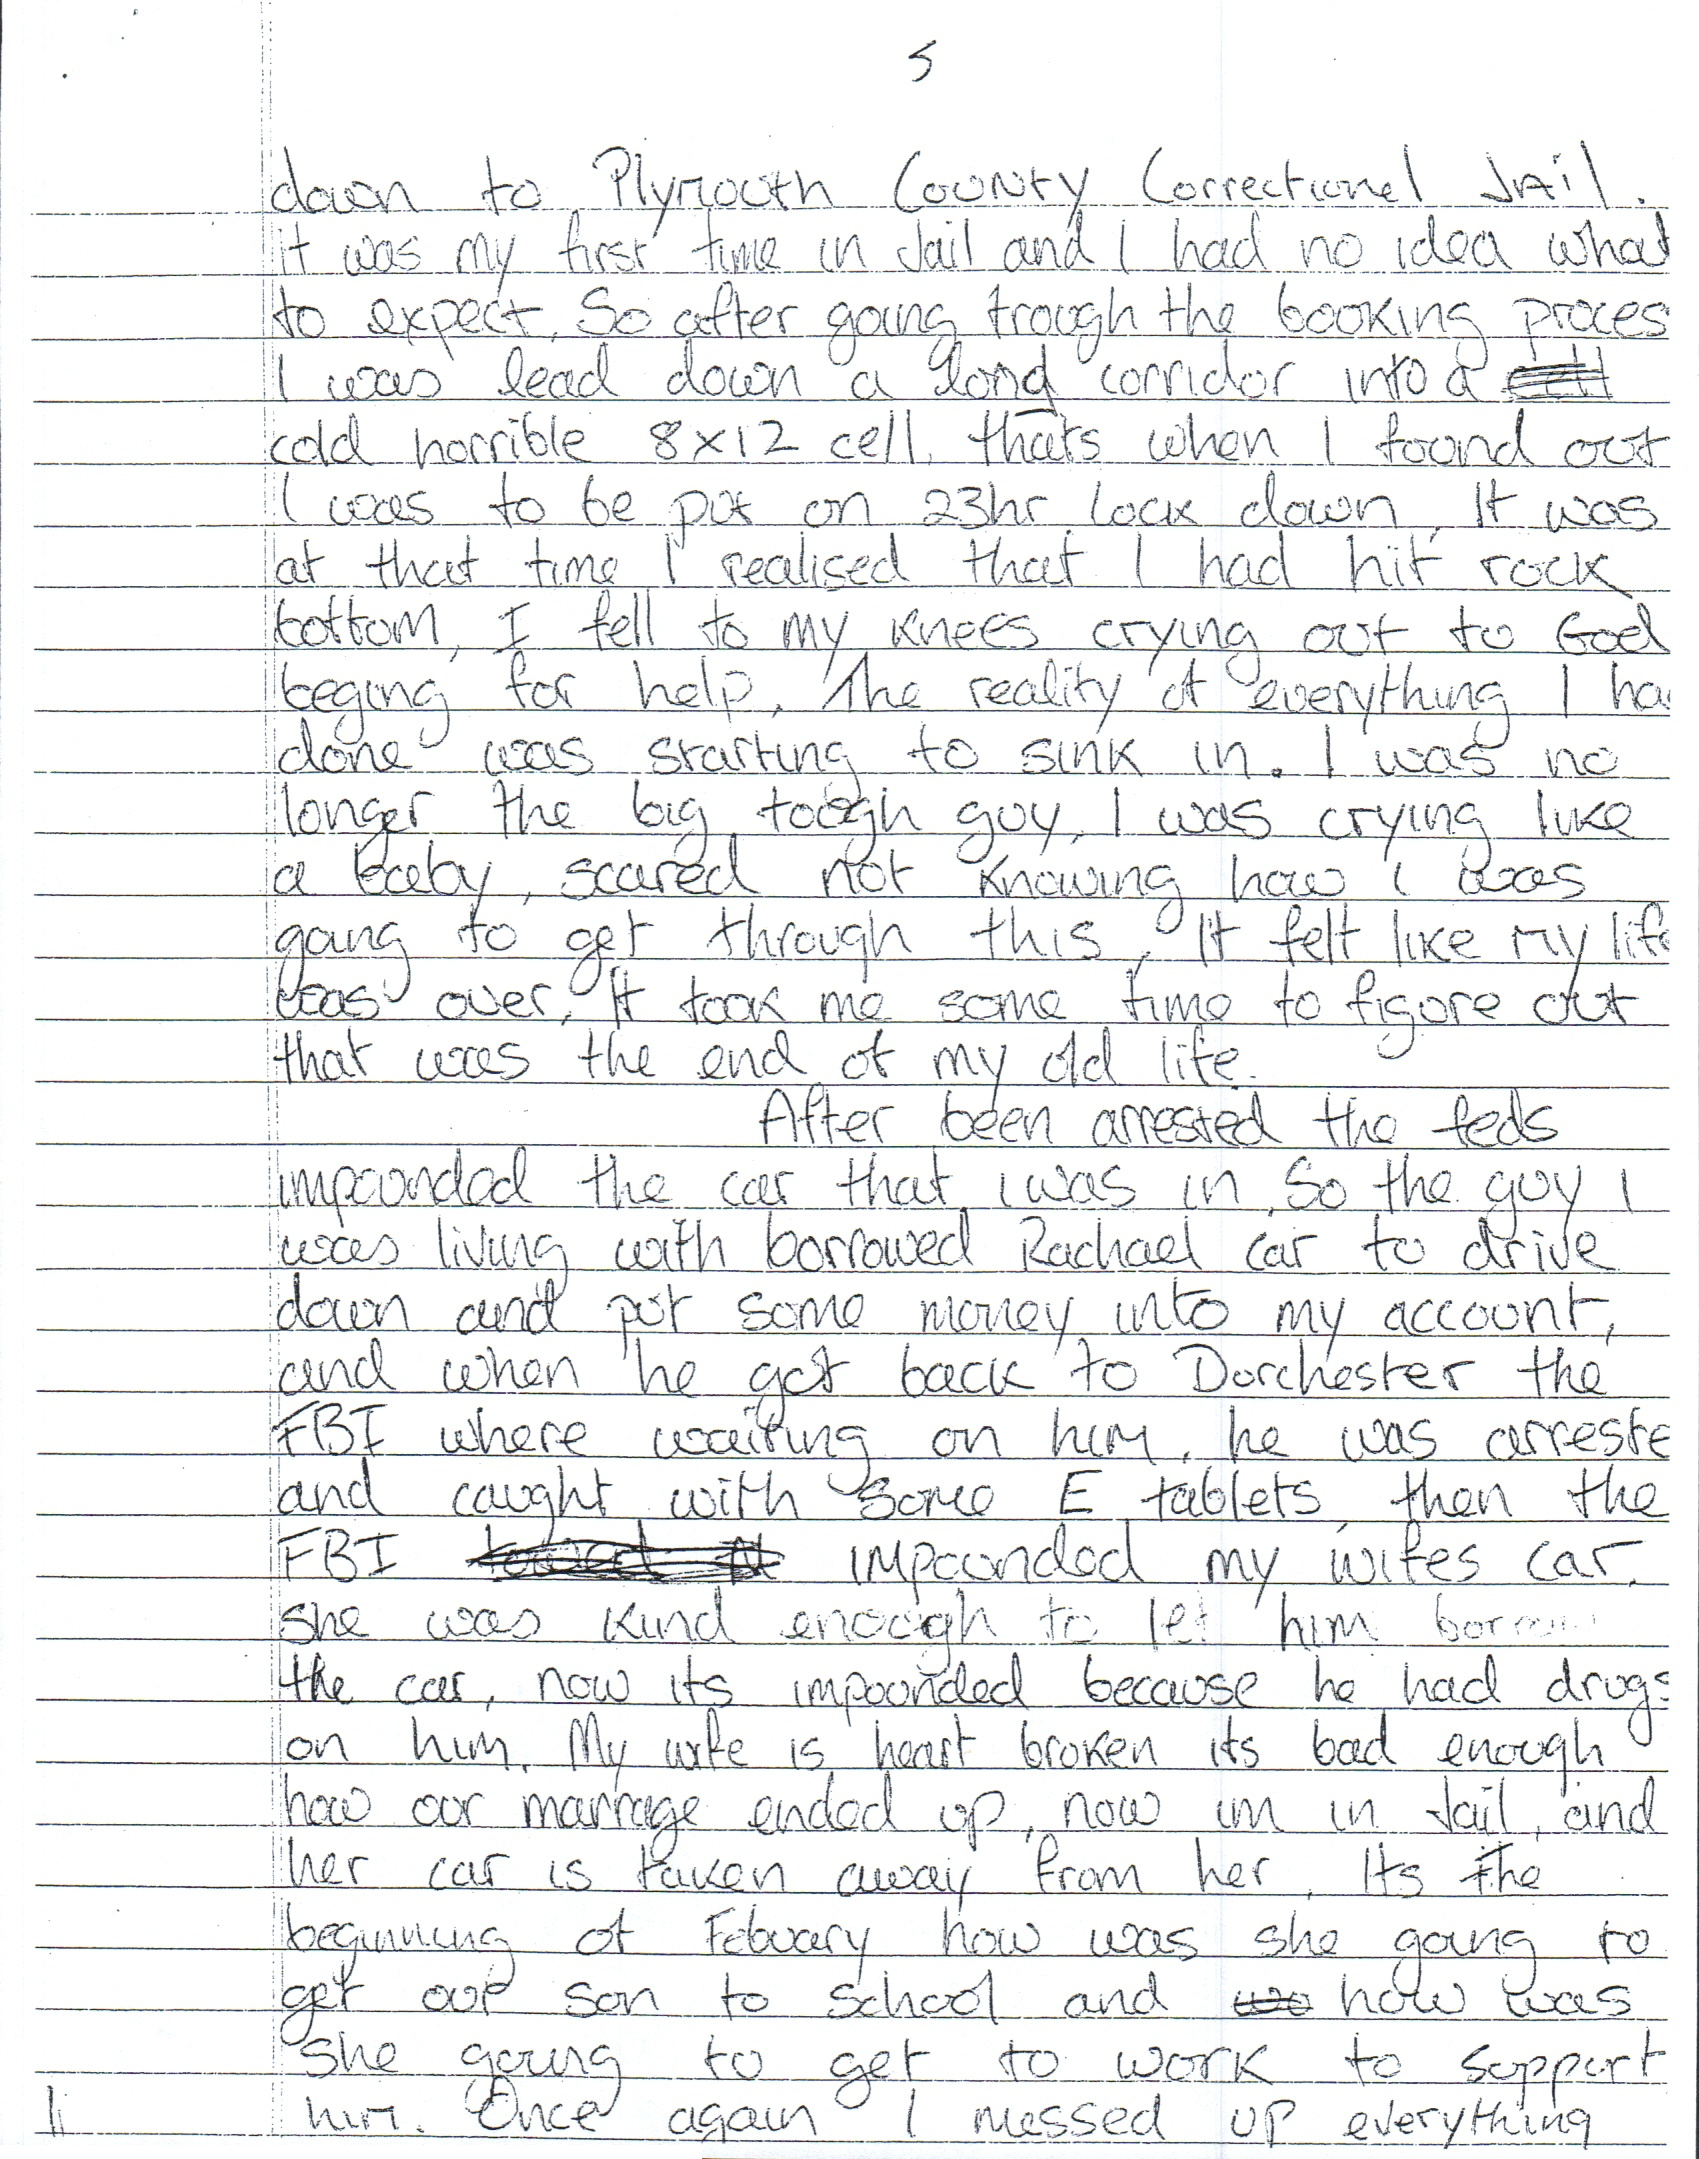 5
down to Plymouth County Correctional Jail.
it was my first time in Jail and I had no idea what
to expect, So after going trough the booking proces
I was lead down a long corridor into a
cold horrible 8x12 cell, thats when I found out
I was to be put on 23hr lock down, It was
at that time I realised that I had hit rock
bottom, I fell to my knees crying out to God
beging for help, The reality of everything I ha
done was starting to sink in. I was no
longer the big tough guy, I was crying like
a baby, scared not knowing how i was
going to get through this, It felt like my life
was over, It took me some time to figure out
that was the end of my old life.
After been arrested the feds
impounded the car that i was in, So the guy I
was living with borrowed Rachael car to drive
down and put some money into my account,
and when he got back to Dorchester the
FBI where waiting on him, he was arreste
and caught with some E tablets, then the
FBI impounded my wifes car.
she was kind enough to let him borrow
the car, now its impounded because he had drugs
on him. My wife is heart broken its bad enough
how our marrage ended up, now im in Jail, and
her car is taken away from her, Its the
beginning of Febuary how was she going to
get our son to school and how was
she going to get to work to support
him. Once again I messed up everything